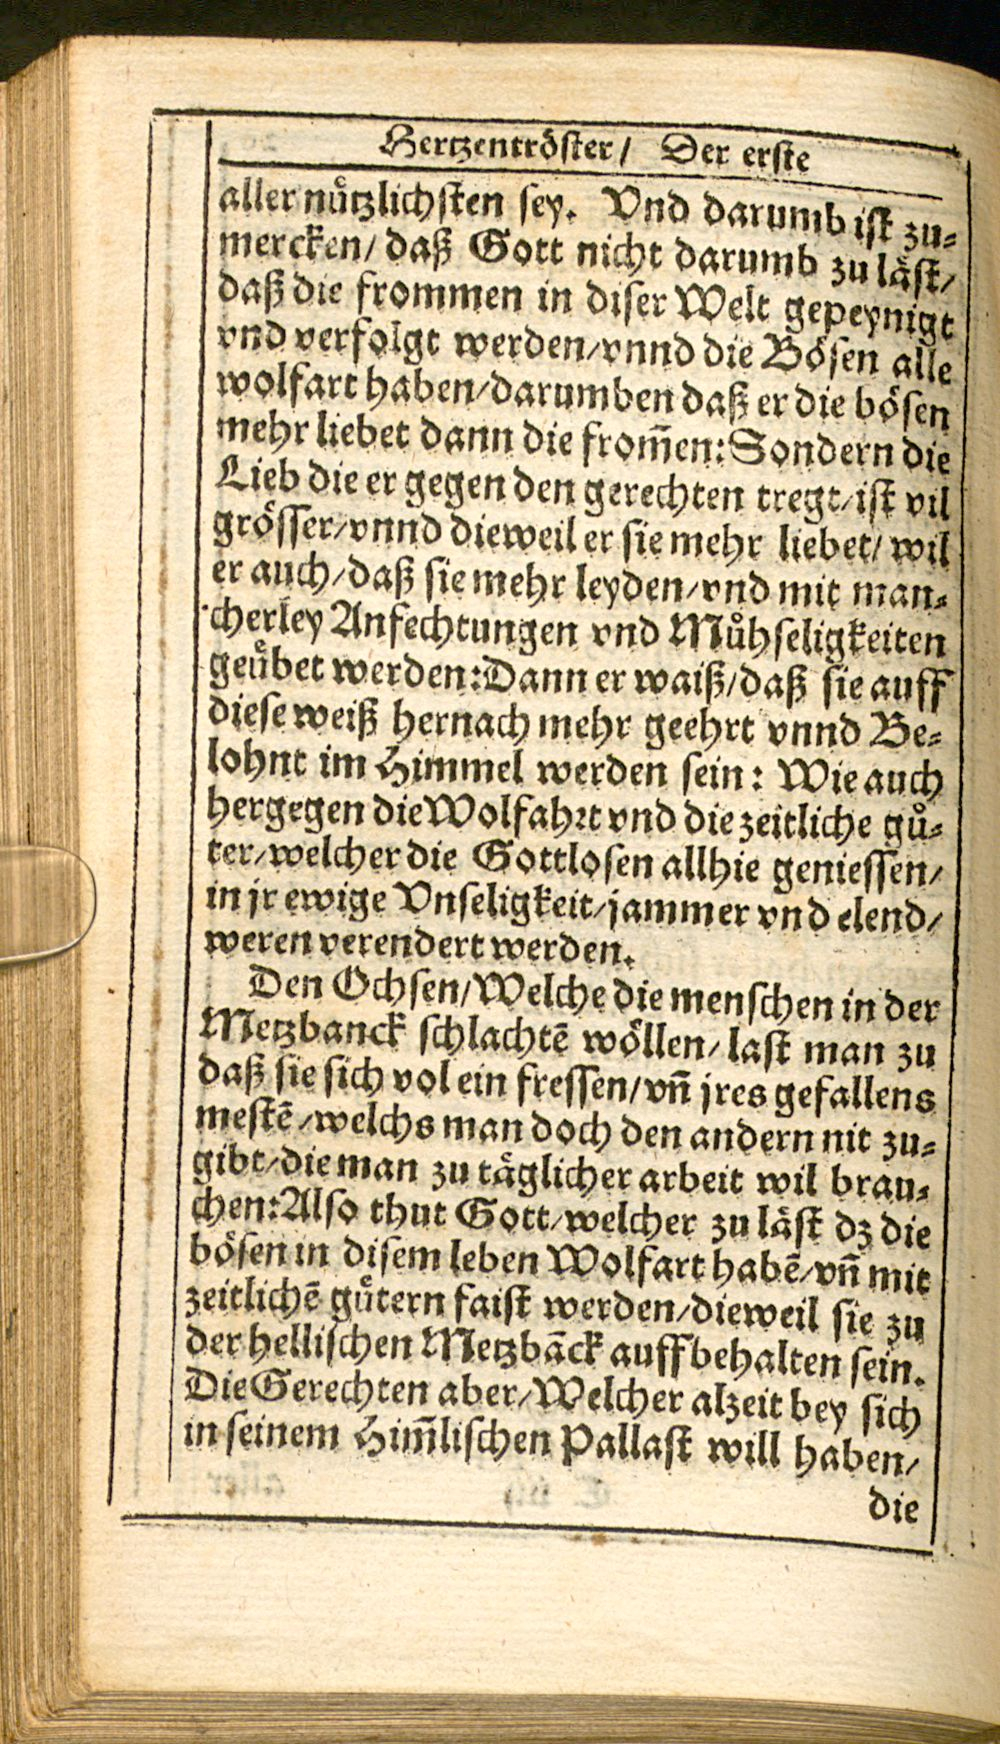 Hertzentröster / Der erste
aller nuͤtzlichsten sey. Vnd darumb ist zu⸗
mercken / daß Gott nicht darumb zu laͤst /
daß die frommen in diser Welt gepeynigt
vnd verfolgt werden / vnnd die Boͤsen alle
wolfart haben / darumben daß er die boͤsen
mehr liebet dann die from̃en: Sondern die
Lieb die er gegen den gerechten tregt / ist vil
groͤsser / vnnd dieweil er sie mehr liebet / wil
er auch / daß sie mehr leyden / vnd mit man⸗
cherley Anfechtungen vnd Muͤhseligkeiten
geuͤbet werden: Dann er waiß / daß sie auff
diese weiß hernach mehr geehrt vnnd Be⸗
lohnt im Himmel werden sein: Wie auch
hergegen die Wolfahꝛt vnd die zeitliche guͤ⸗
ter / welcher die Gottlosen allhie geniessen /
in jr ewige Vnseligkeit / jammer vnd elend /
weren verendert werden.
Den Ochsen / Welche die menschen in der
Metzbanck schlachtẽ woͤllen / last man zu
daß sie sich vol ein fressen / vñ jres gefallens
mestẽ / welchs man doch den andern nit zu⸗
gibt / die man zu taͤglicher arbeit wil brau⸗
chen: Also thut Gott / welcher zu laͤst dz die
boͤsen in disem leben Wolfart habẽ / vñ mit
zeitlichẽ guͤtern faist werden / dieweil sie zu
der hellischen Metzbãck auffbehalten sein.
Die Gerechten aber / Welcher alzeit bey sich
in seinem Him̃lischen Pallast will haben /
die